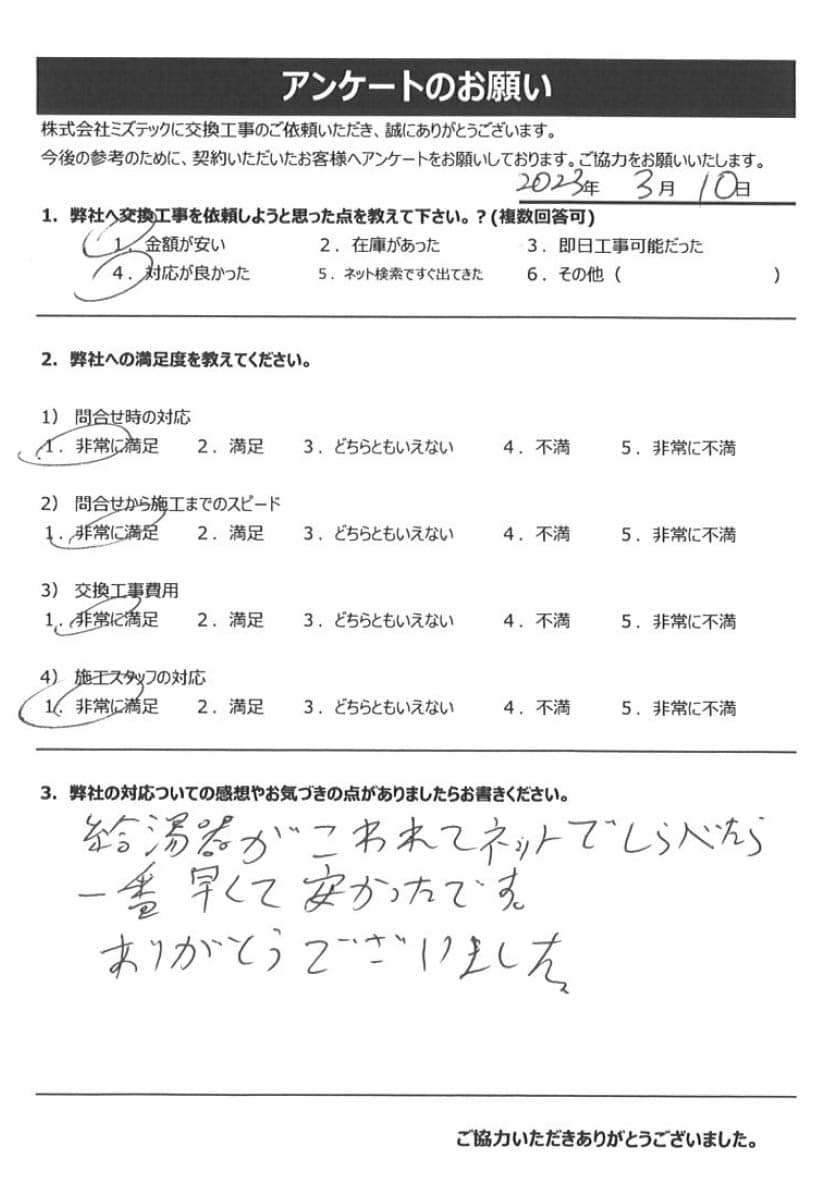 アンケートのお願い
株式会社ミズテックに交換工事のご依頼いただき、誠にありがとうございます。
今後の参考のために、契約いただいたお客様へアンケートをお願いしております。ご協力をお願いいたします。
2023年 3月 10日
1. 弊社へ交換工事を依頼しようと思った点を教えて下さい。?(複数回答可)
1. 金額が安い 2. 在庫があった 3. 即日工事可能だった
4. 対応が良かった 5. ネット検索ですぐ出てきた 6. その他 ( )
2. 弊社への満足度を教えてください。
1) 問合せ時の対応
1. 非常に満足 2. 満足 3. どちらともいえない 4. 不満 5. 非常に不満
2) 問合せから施工までのスピード
1. 非常に満足 2. 満足 3. どちらともいえない 4. 不満 5. 非常に不満
3) 交換工事費用
1. 非常に満足 2. 満足 3. どちらともいえない 4. 不満 5. 非常に不満
4) 施工スタッフの対応
1. 非常に満足 2. 満足 3. どちらともいえない 4. 不満 5. 非常に不満
3. 弊社の対応ついての感想やお気づきの点がありましたらお書きください。
給湯器がこわれてネットでしらべたら
一番早くて安かったです。
ありがとうございました。
ご協力いただきありがとうございました。